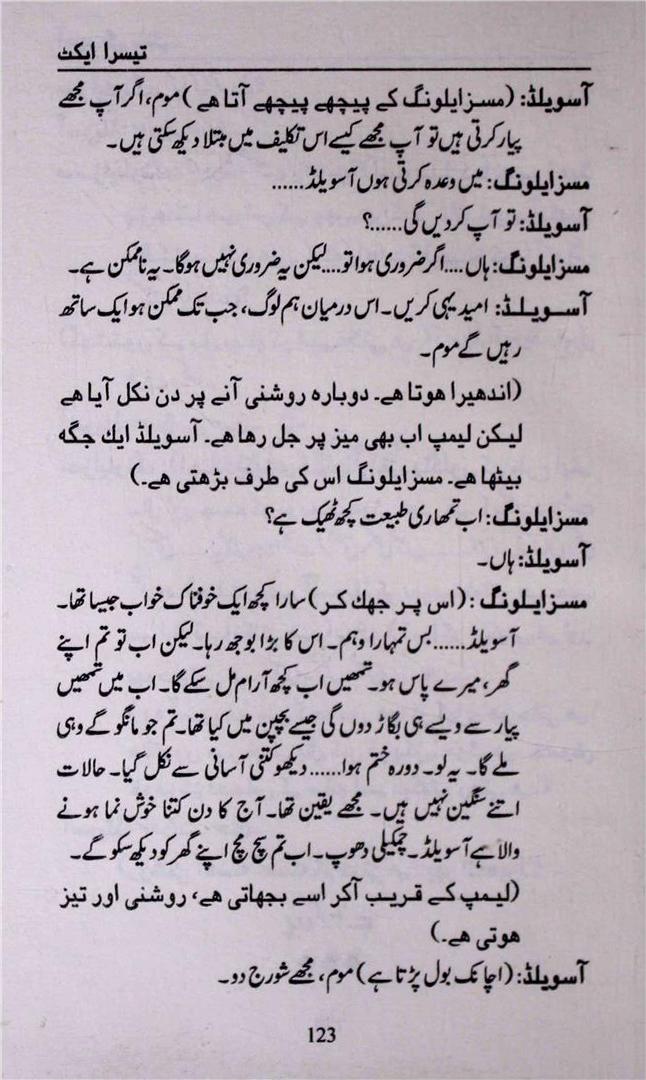 تیسرا ایکٹ
آسویلڈ: (مسز ایلونگ کے پیچھے پیچھے آتا ہے) موم، اگر آپ مجھے
پیار کرتی ہیں تو آپ مجھے کیسے اس تکلیف میں مبتلا دیکھ سکتی ہیں۔
مسز ایلونگ: میں وعدہ کرتی ہوں آسویلڈ......
آسویلڈ: تو آپ کر دیں گی......؟
مسز ایلونگ: ہاں.... اگر ضروری ہوا تو.... لیکن یہ ضروری نہیں ہوگا۔ یہ ناممکن ہے۔
آسویلڈ: امید یہی کریں۔ اس درمیان ہم لوگ، جب تک ممکن ہو ایک ساتھ
رہیں گے موم۔
(اندھیرا ہوتا ہے۔ دوبارہ روشنی آنے پر دن نکل آیا ہے
لیکن لیمپ اب بھی میز پر جل رہا ہے۔ آسویلڈ ایک جگہ
بیٹھا ہے۔ مسز ایلونگ اس کی طرف بڑھتی ہے۔)
مسز ایلونگ: اب تمھاری طبیعت کچھ ٹھیک ہے؟
آسویلڈ: ہاں۔
مسز ایلونگ: (اس پر جھک کر) سارا کچھ ایک خوفناک خواب جیسا تھا۔
آسویلڈ...... بس تمہارا وہم۔ اس کا بڑا بوجھ رہا۔ لیکن اب تو تم اپنے
گھر، میرے پاس ہو۔ تمھیں اب کچھ آرام مل سکے گا۔ اب میں تمھیں
پیار سے ویسے ہی بگاڑ دوں گی جیسے بچپن میں کیا تھا۔ تم جو مانگو گے وہی
ملے گا۔ یہ لو۔ دورہ ختم ہوا...... دیکھو کتنی آسانی سے نکل گیا۔ حالات
اتنے سنگین نہیں ہیں۔ مجھے یقین تھا۔ آج کا دن کتنا خوش نما ہونے
والا ہے آسویلڈ۔ چمکیلی دھوپ۔ اب تم سچ مچ اپنے گھر کو دیکھ سکو گے۔
(لیمپ کے قریب آکر اسے بجھاتی ہے، روشنی اور تیز
ہوتی ہے۔)
آسویلڈ: (اچانک بول پڑتا ہے) موم، مجھے سورج دو۔
123